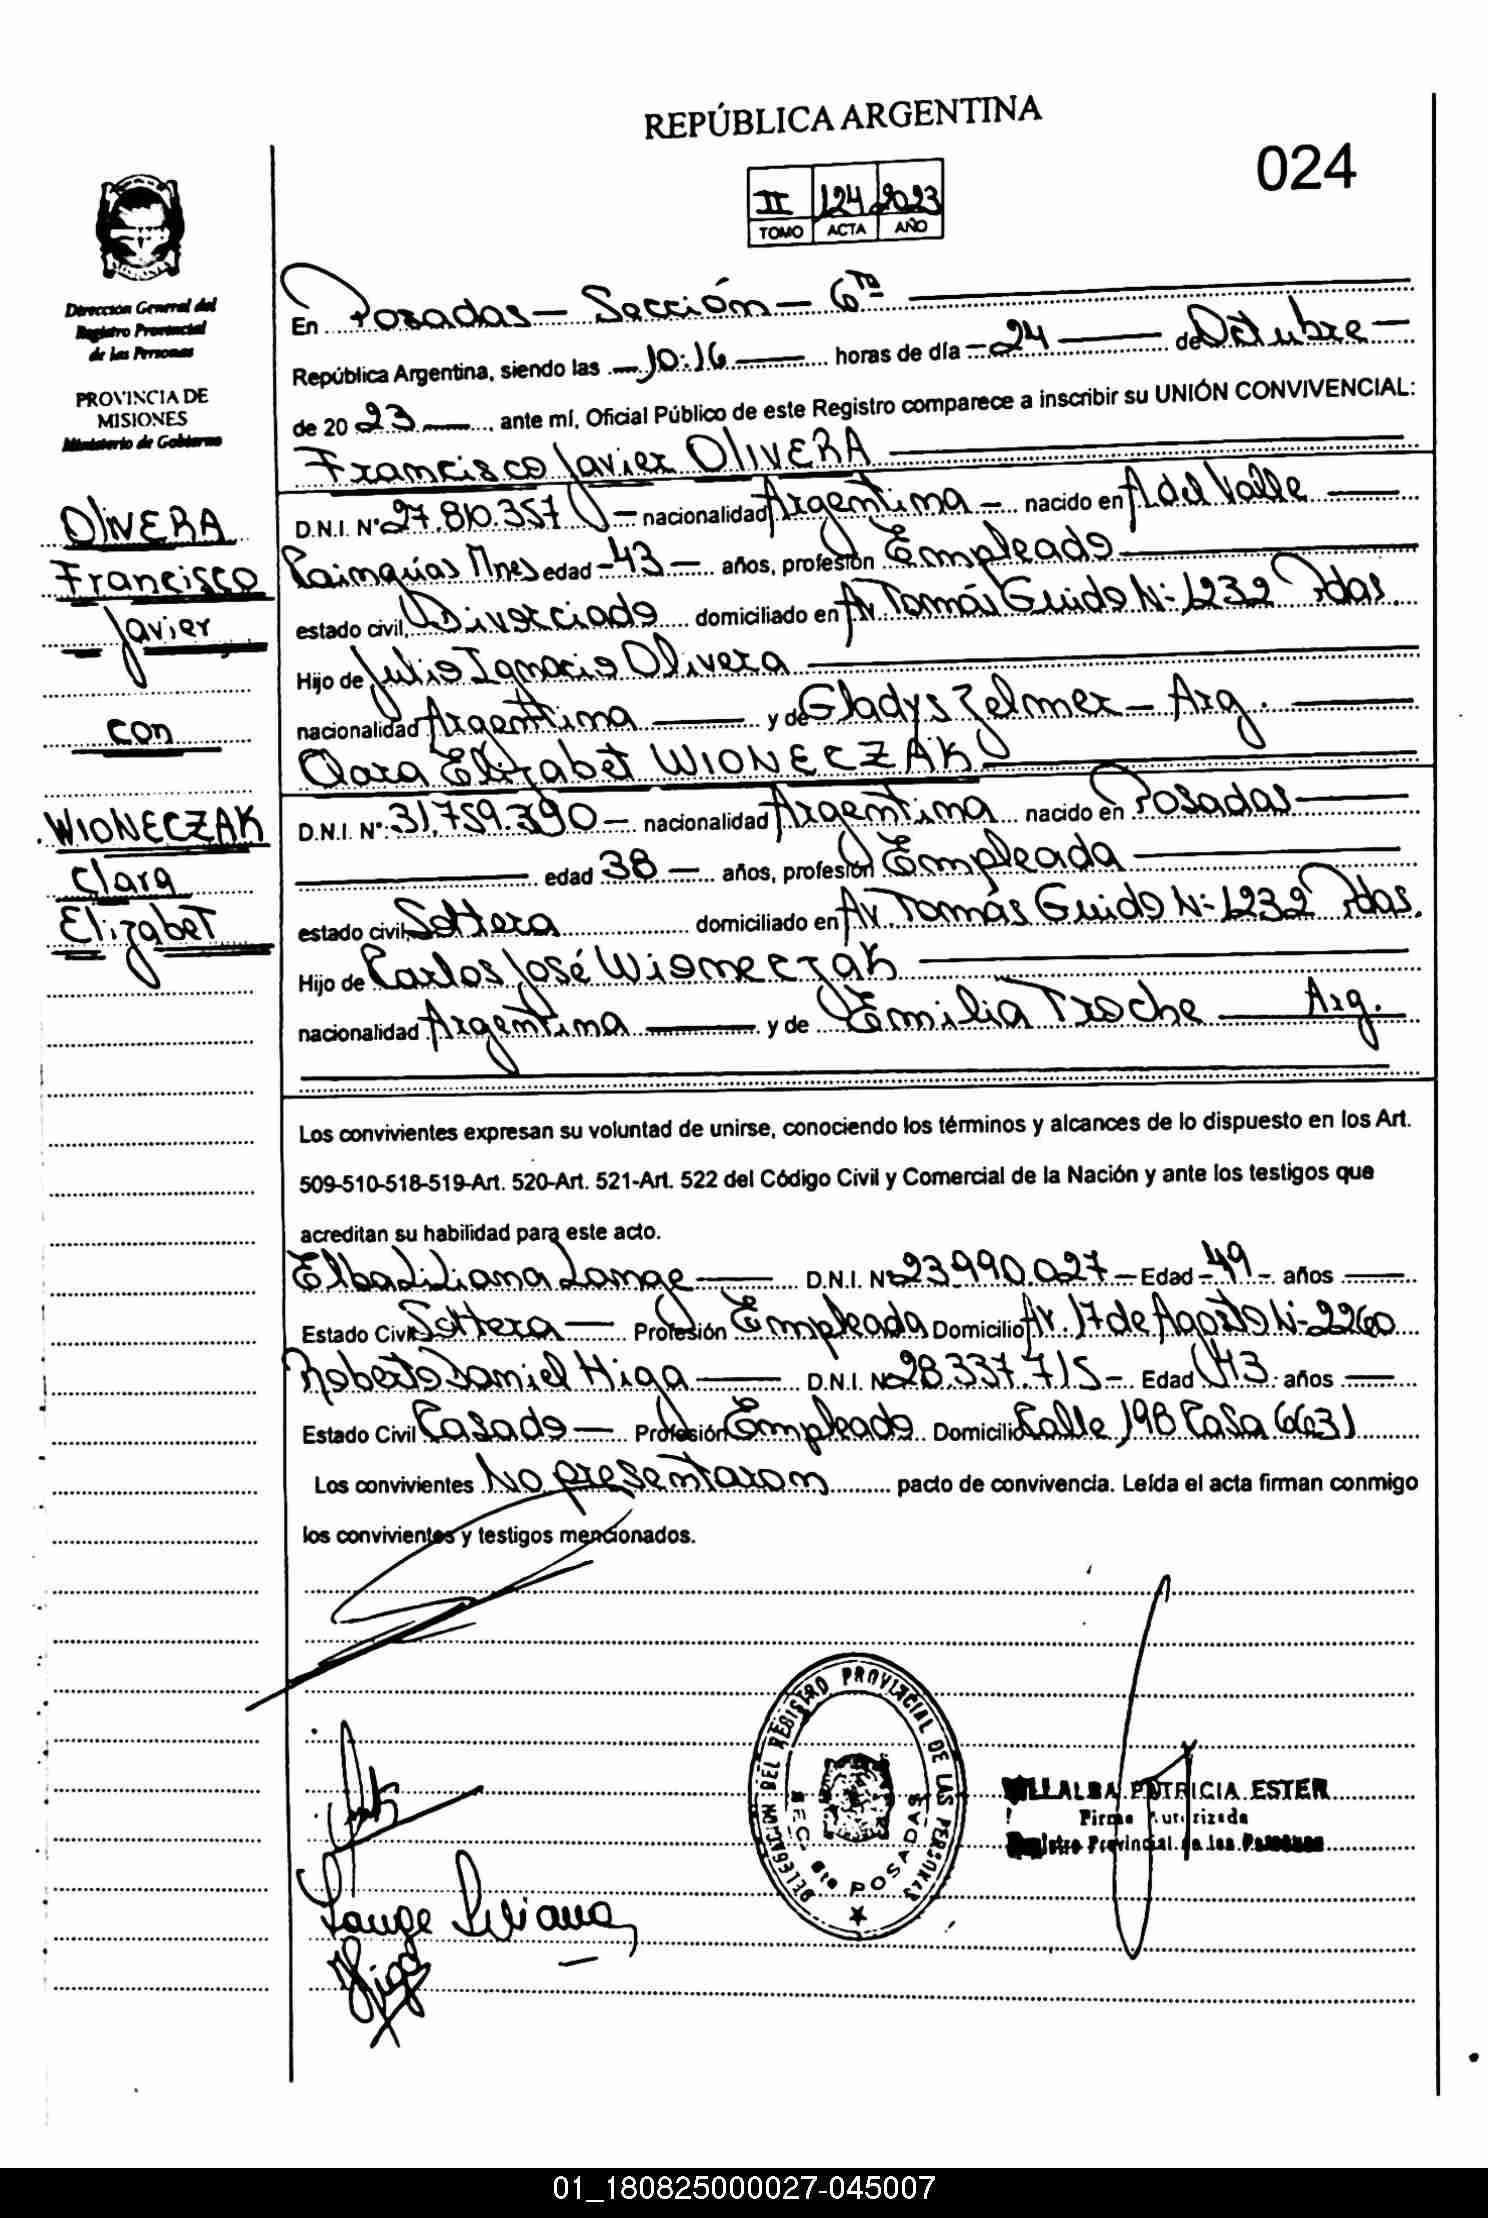 REPÚBLICA ARGENTINA
024
II 124 2023
TOMO ACTA AÑO
Dirección General del
Registro Provincial
de las Personas
PROVINCIA DE
MISIONES
Ministerio de Gobierno
OLIVERA
Francisco
Javier
con
WIONECZAK
Clara
Elizabet
En Posadas - Sección - 6ta
República Argentina, siendo las 10:16 horas de día 24 de Octubre
de 2023, ante mí, Oficial Público de este Registro comparece a inscribir su UNIÓN CONVIVENCIAL:
Francisco Javier OLIVERA
D.N.I. N° 27.810.357 - nacionalidad Argentina - nacido en A del Valle
Mnes edad - 43 - años, profesión Empleado
estado civil, Divorciado domiciliado en Av Tomás Guido N° 1232 Pdas.
Hijo de Julio Ignacio Olivera
nacionalidad Argentina y de Gladys Zelmer - Arg.
Clara Elizabet WIONECZAK
D.N.I. N°: 31.759.390 - nacionalidad Argentina nacido en Posadas
edad 38 - años, profesión Empleada
estado civil, Soltera domiciliado en Av. Tomás Guido N° 1232 Pdas.
Hijo de Carlos José Wioneczak
nacionalidad Argentina y de Emilia Troche Arg.
Los convivientes expresan su voluntad de unirse, conociendo los términos y alcances de lo dispuesto en los Art.
509-510-518-519-Art. 520-Art. 521-Art. 522 del Código Civil y Comercial de la Nación y ante los testigos que
acreditan su habilidad para este acto.
Elba Liliana Lange D.N.I. N° 23.990.027 - Edad - 49 - años
Estado Civil Soltera - Profesión Empleada Domicilio Av. 17 de Agosto N° 2260
Roberto Daniel Higa D.N.I. N° 28.337.715 - Edad 43 años
Estado Civil Casado - Profesión Empleado Domicilio Calle 198 Casa 6631
Los convivientes No presentaron pacto de convivencia. Leída el acta firman conmigo
los convivientes y testigos mencionados.
DELEGACION DEL REGISTRO PROVINCIAL DE LAS PERSONAS
SECC. 6ta POSADAS
VILLALBA PATRICIA ESTER
Firma Autorizada
Registro Provincial de las Personas
Lange Liliana
Higa
01_180825000027-045007